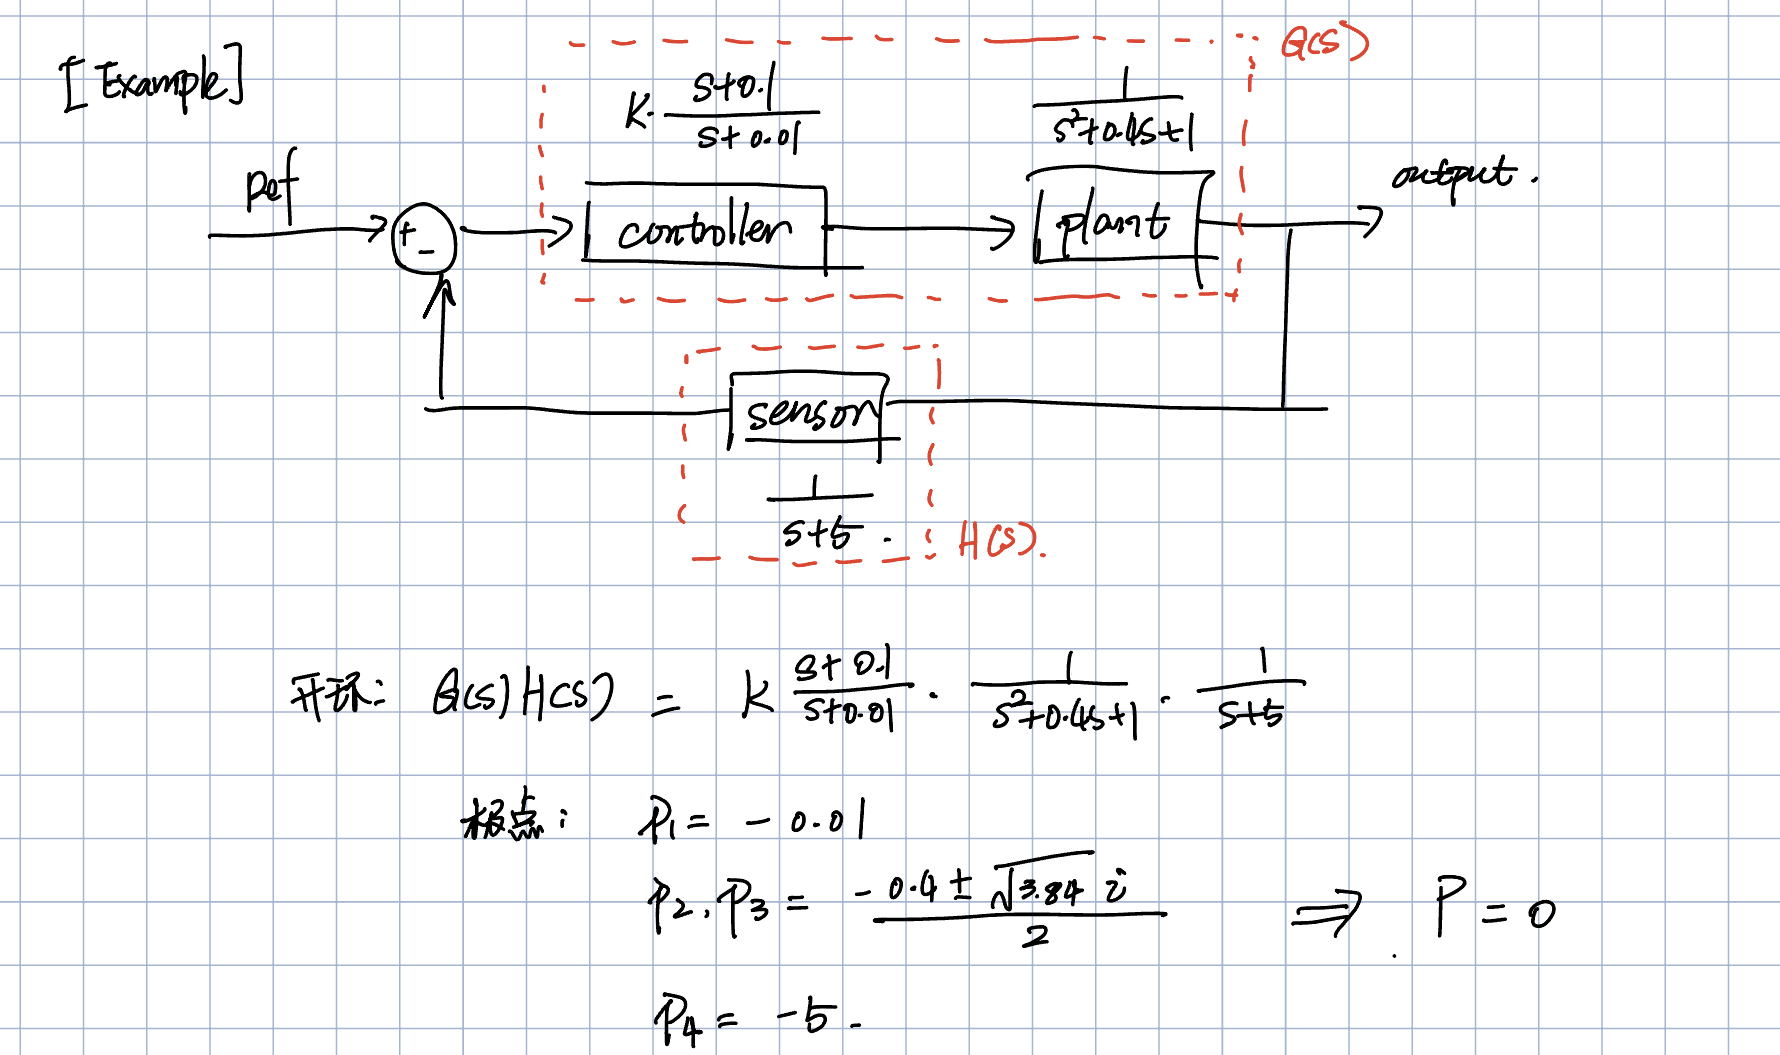 [Example]
G(s)
K· (s+0.1)/(s+0.01)
1/(s²+0.4s+1)
Ref
+
-
controller
plant
output.
sensor
1/(s+5).
H(s).
开环: G(s)H(s) = K (s+0.1)/(s+0.01) · 1/(s²+0.4s+1) · 1/(s+5)
极点: P₁ = -0.01
P₂, P₃ = (-0.4 ± √3.84 i)/2 ⇒ P = 0
P₄ = -5.